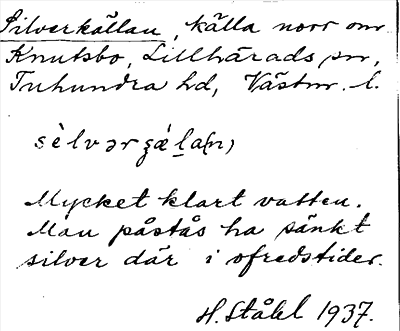 Silverkällan, källa norr om
Knutsbo, Lillhärads sn,
Tuhundra hd, Västm. l.
sè̀lvərʒǽla(n)
Mycket klart vatten.
Man påstås ha sänkt
silver där i ofredstider.
H. Ståhl 1937.